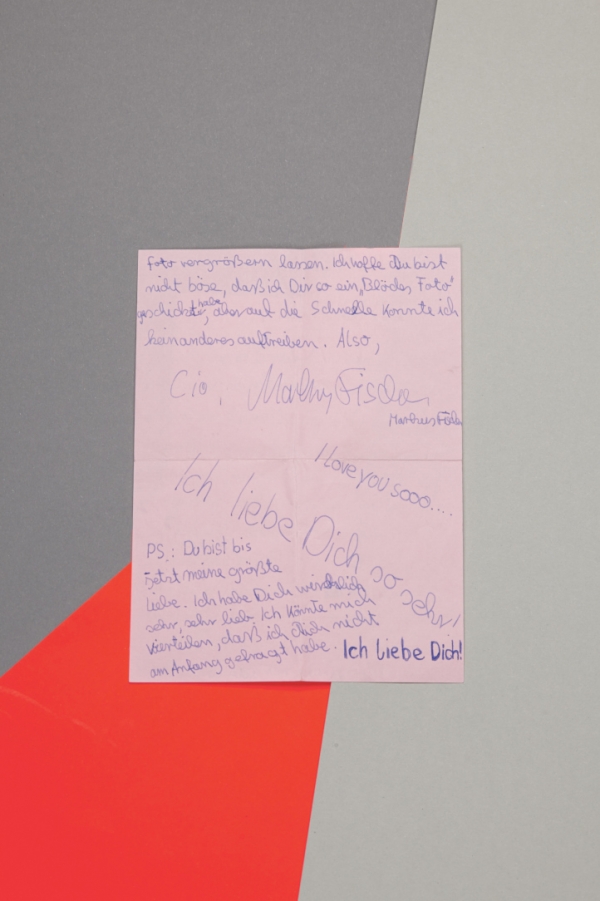 Foto vergrößern lassen. Ich hoffe Du bist
nicht böse, daß ich Dir so ein „Blödes Foto"
geschickt habe, aber auf die Schnelle konnte ich
kein anderes auftreiben. Also,
Cio,
I love you sooo....
Ich liebe Dich so sehr!
PS.: Du bist bis
jetzt meine größte
Liebe. Ich habe Dich wirklich
sehr, sehr lieb. Ich könnte mich
vierteilen, daß ich Dich nicht
am Anfang gefragt habe. Ich liebe Dich!